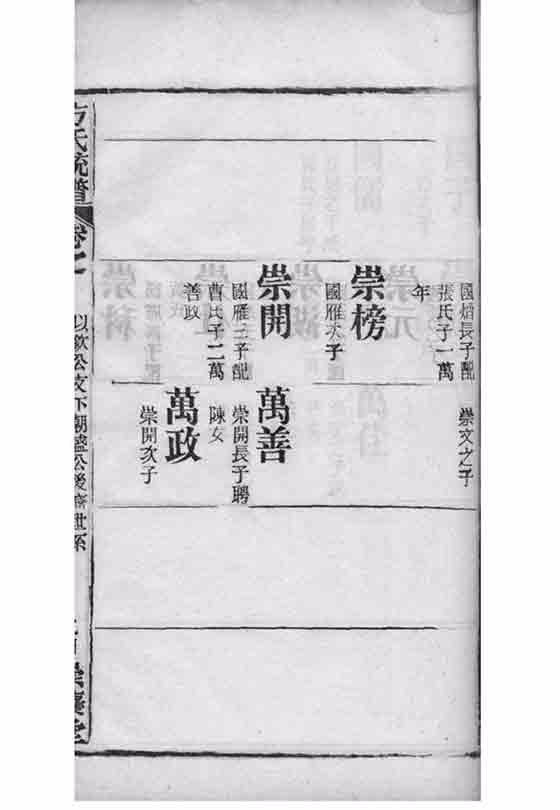 國焴長子配
張氏子一萬
年
崇文之子
崇榜
國雁次子
崇開
國雁三子配
曹氏子二萬
善政
萬善
崇開長子聘
陳女
萬政
崇開次子
方氏統譜
卷七
以敬公支下朝盛公後裔世系